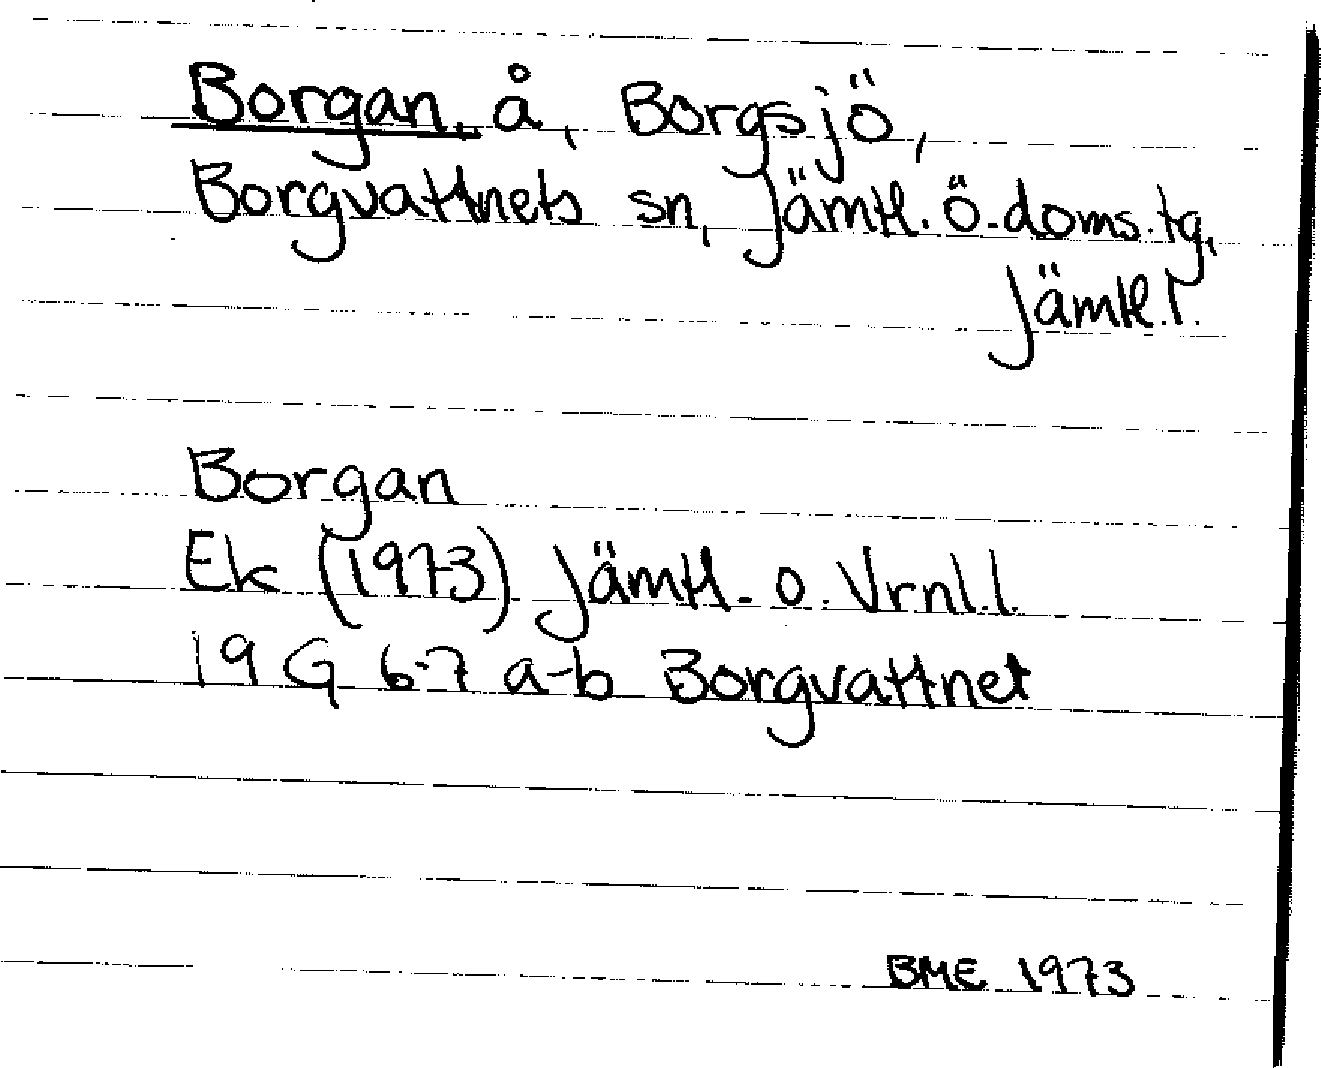 Borgan, å, Borgsjö,
Borgvattnets sn, Jämtl. Ö. doms. tg,
Jämtl. l.
Borgan
Ek (1973) Jämtl. o. Vrnl. l.
19 G 6-7 a-b Borgvattnet
BME 1973